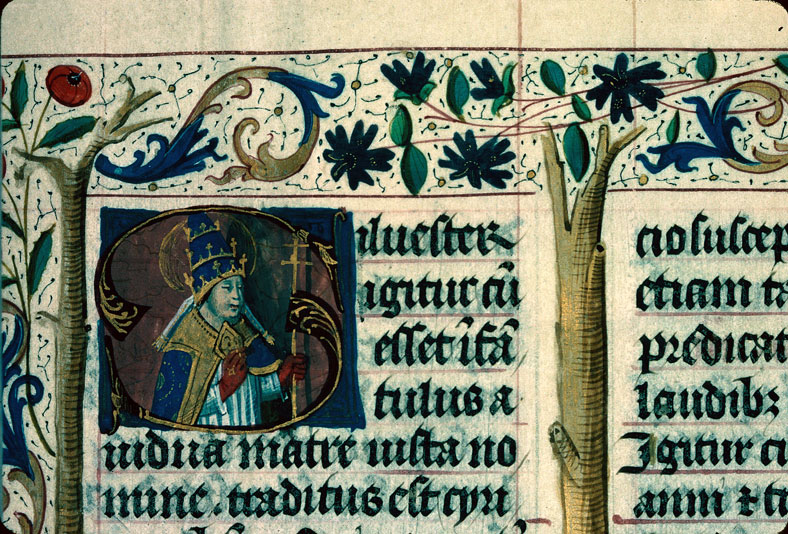 Siluester
igitur cū
esset īfā
tulus a
uidua matre iusta no
mine. traditus est cyri
cio suscep
etiam ta
predicat
laudibꝫ
Igitur